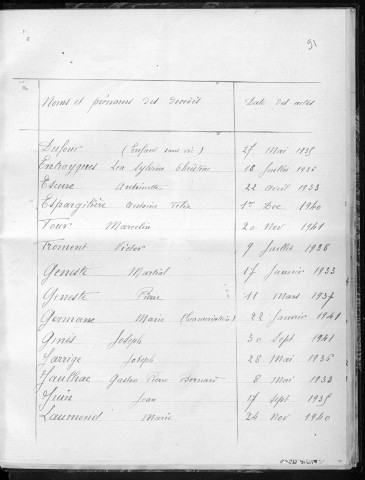 91
Noms et prénoms des décédés Date des actes
Dufour (Enfant sans vie) 27 Mai 1935
Entraygues Léa Sylvina Christine 18 Juillet 1936
Eseure Antoinette 22 avril 1933
Espargilière Antoine Félix 1er Dec 1940
Four Marcelin 20 Nov 1941
Froment Victor 9 Juillet 1938
Geneste Martial 17 Janvier 1933
Geneste Pierre 11 Mars 1937
Germane Marie 22 Janvier 1941
Ginès Joseph 30 Sept 1941
Jarrige Joseph 28 Mai 1936
Jaulhac Gaston Pierre Bernard 8 Mai 1933
Juin Jean 17 Sept 1935
Laumond Marie 24 Nov 1940